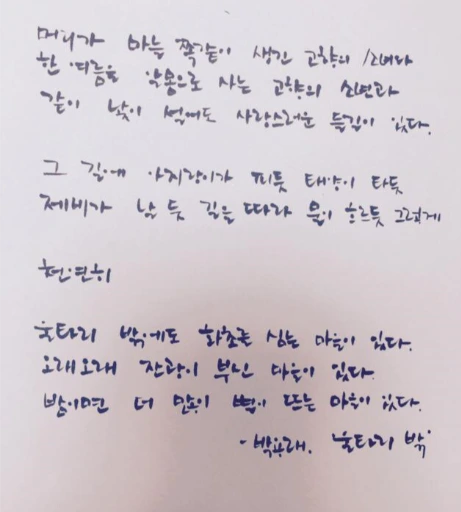 머리가 마늘 쪽같이 생긴 고향의 소녀와
한 여름을 알몸으로 사는 고향의 소년과
같이 낯이 설어도 사랑스러운 들길이 있다.
그 길에 아지랑이가 피듯 태양이 타듯
제비가 날 듯 길을 따라 물이 흐르듯 그렇게
천연히
울타리 밖에도 화초를 심는 마을이 있다.
오래오래 잔광이 부신 마을이 있다.
밤이면 더 많이 별이 뜨는 마을이 있다.
- 박용래. 울타리 밖